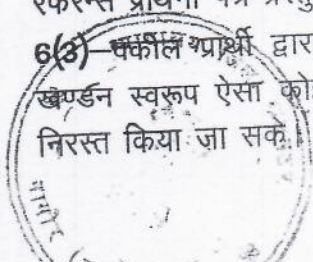 रेफरेन्स प्रार्थना पत्र
6(3)—वकील प्रार्थी द्वार
खण्डन स्वरूप ऐसा को
निरस्त किया जा सके।
नागौर